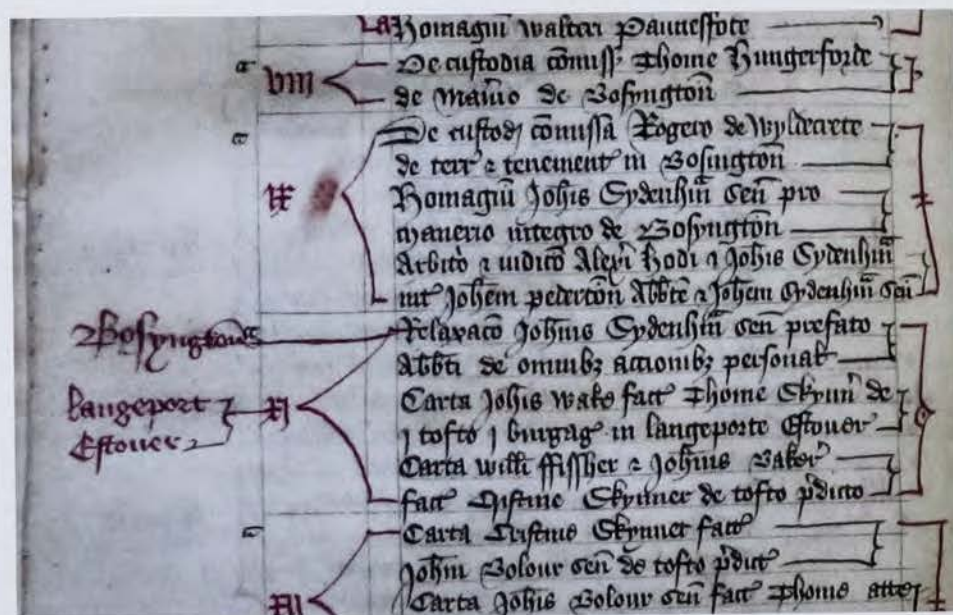 Homagiū Walteri Pauncefote
VIII De custodia cōmiss' Thome Hungerforde
de Man̄io de Bosyngton̄
De custod' cōmissa Rogero de Wyldecrete
de terr' ⁊ tenement' in Bosington̄
IX Homagiū Joh̄is Sydenhm̄ sen̄ pro
manerio integro de Bosyngton̄
Arbit'o ⁊ iudic̄o Alex̄i Hodi ⁊ Joh̄is Sydenhm̄
int' Joh̄em pederton̄ Abb̄te ⁊ Joh̄em Sydenhm̄ sen̄
Bosyngton̄ Relaxac̄o Joh̄nis Sydenhm̄ sen̄ prefato
Abb̄ti de omnibꝫ accionibꝫ personal'
langeport XI Carta Joh̄is Wake fact' Thome Skynn' de
Estouer j tofto j burgag' in langeporte Estouer
Carta Willi ffissher ⁊ Joh̄nis Baker
fact' Cristine Skynner de tofto p̄dicto
Carta Cristine Skynner fact'
Joh̄ni Bolour sen̄ de tofto p̄dict'
XII Carta Joh̄is Bolour sen̄ fact' Thome atte